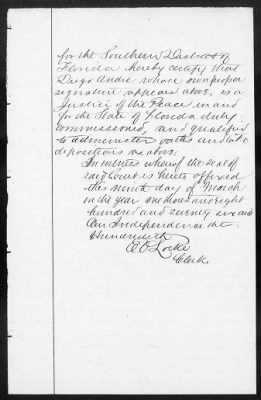 for the Southern District of
Florida hereby certify that
Diego Andre whose own proper
signature appears above, is a
Justice of the Peace in and
for the State of Florida duly
commissioned, and qualified
to administer oaths and take
depositions as above.
In witness whereof the seal of
said Court is hereto affixed
this ninth day of March
in the year one thousand eight
hundred and seventy six and
Our Independence the
Hundredth
E O Locke
Clerk